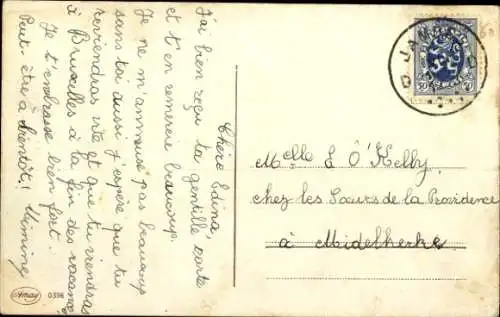 Chère Edina,
J'ai bien reçu ta gentille carte
et t'en remercie beaucoup.
Je ne m'ammuse pas beaucoup
sans toi aussi j'espère que tu
reviendras vite et que tu viendras
à Bruxelles à la fin des vacances
Je t'embrasse bien fort.
Peut-être à bientôt! Mimine
Melle E O'Kelly
chez les Sœurs de la Providence
à Midelkerke
JAM
50
50
Amag 0396